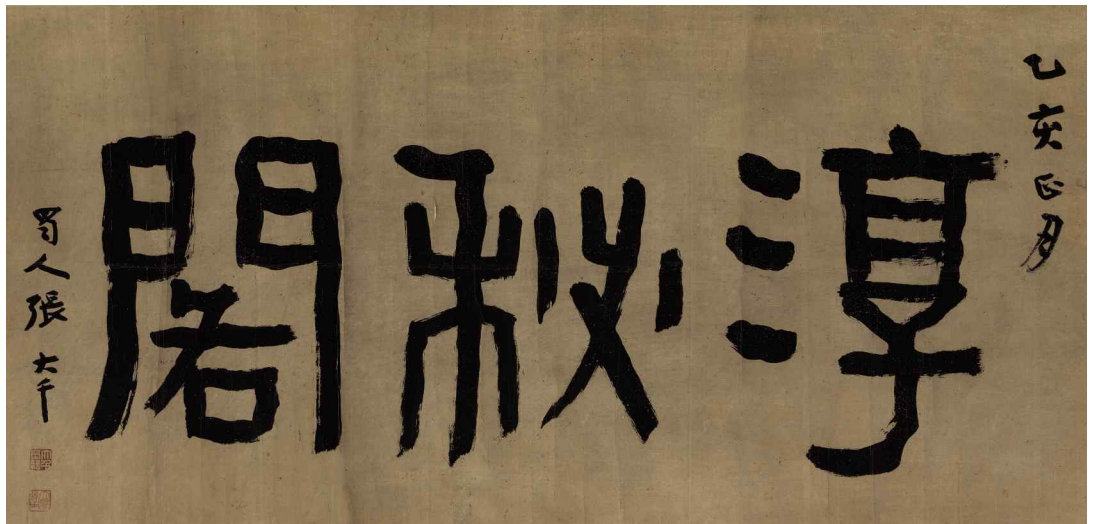 乙亥正月
淳秘閣
蜀人張大千